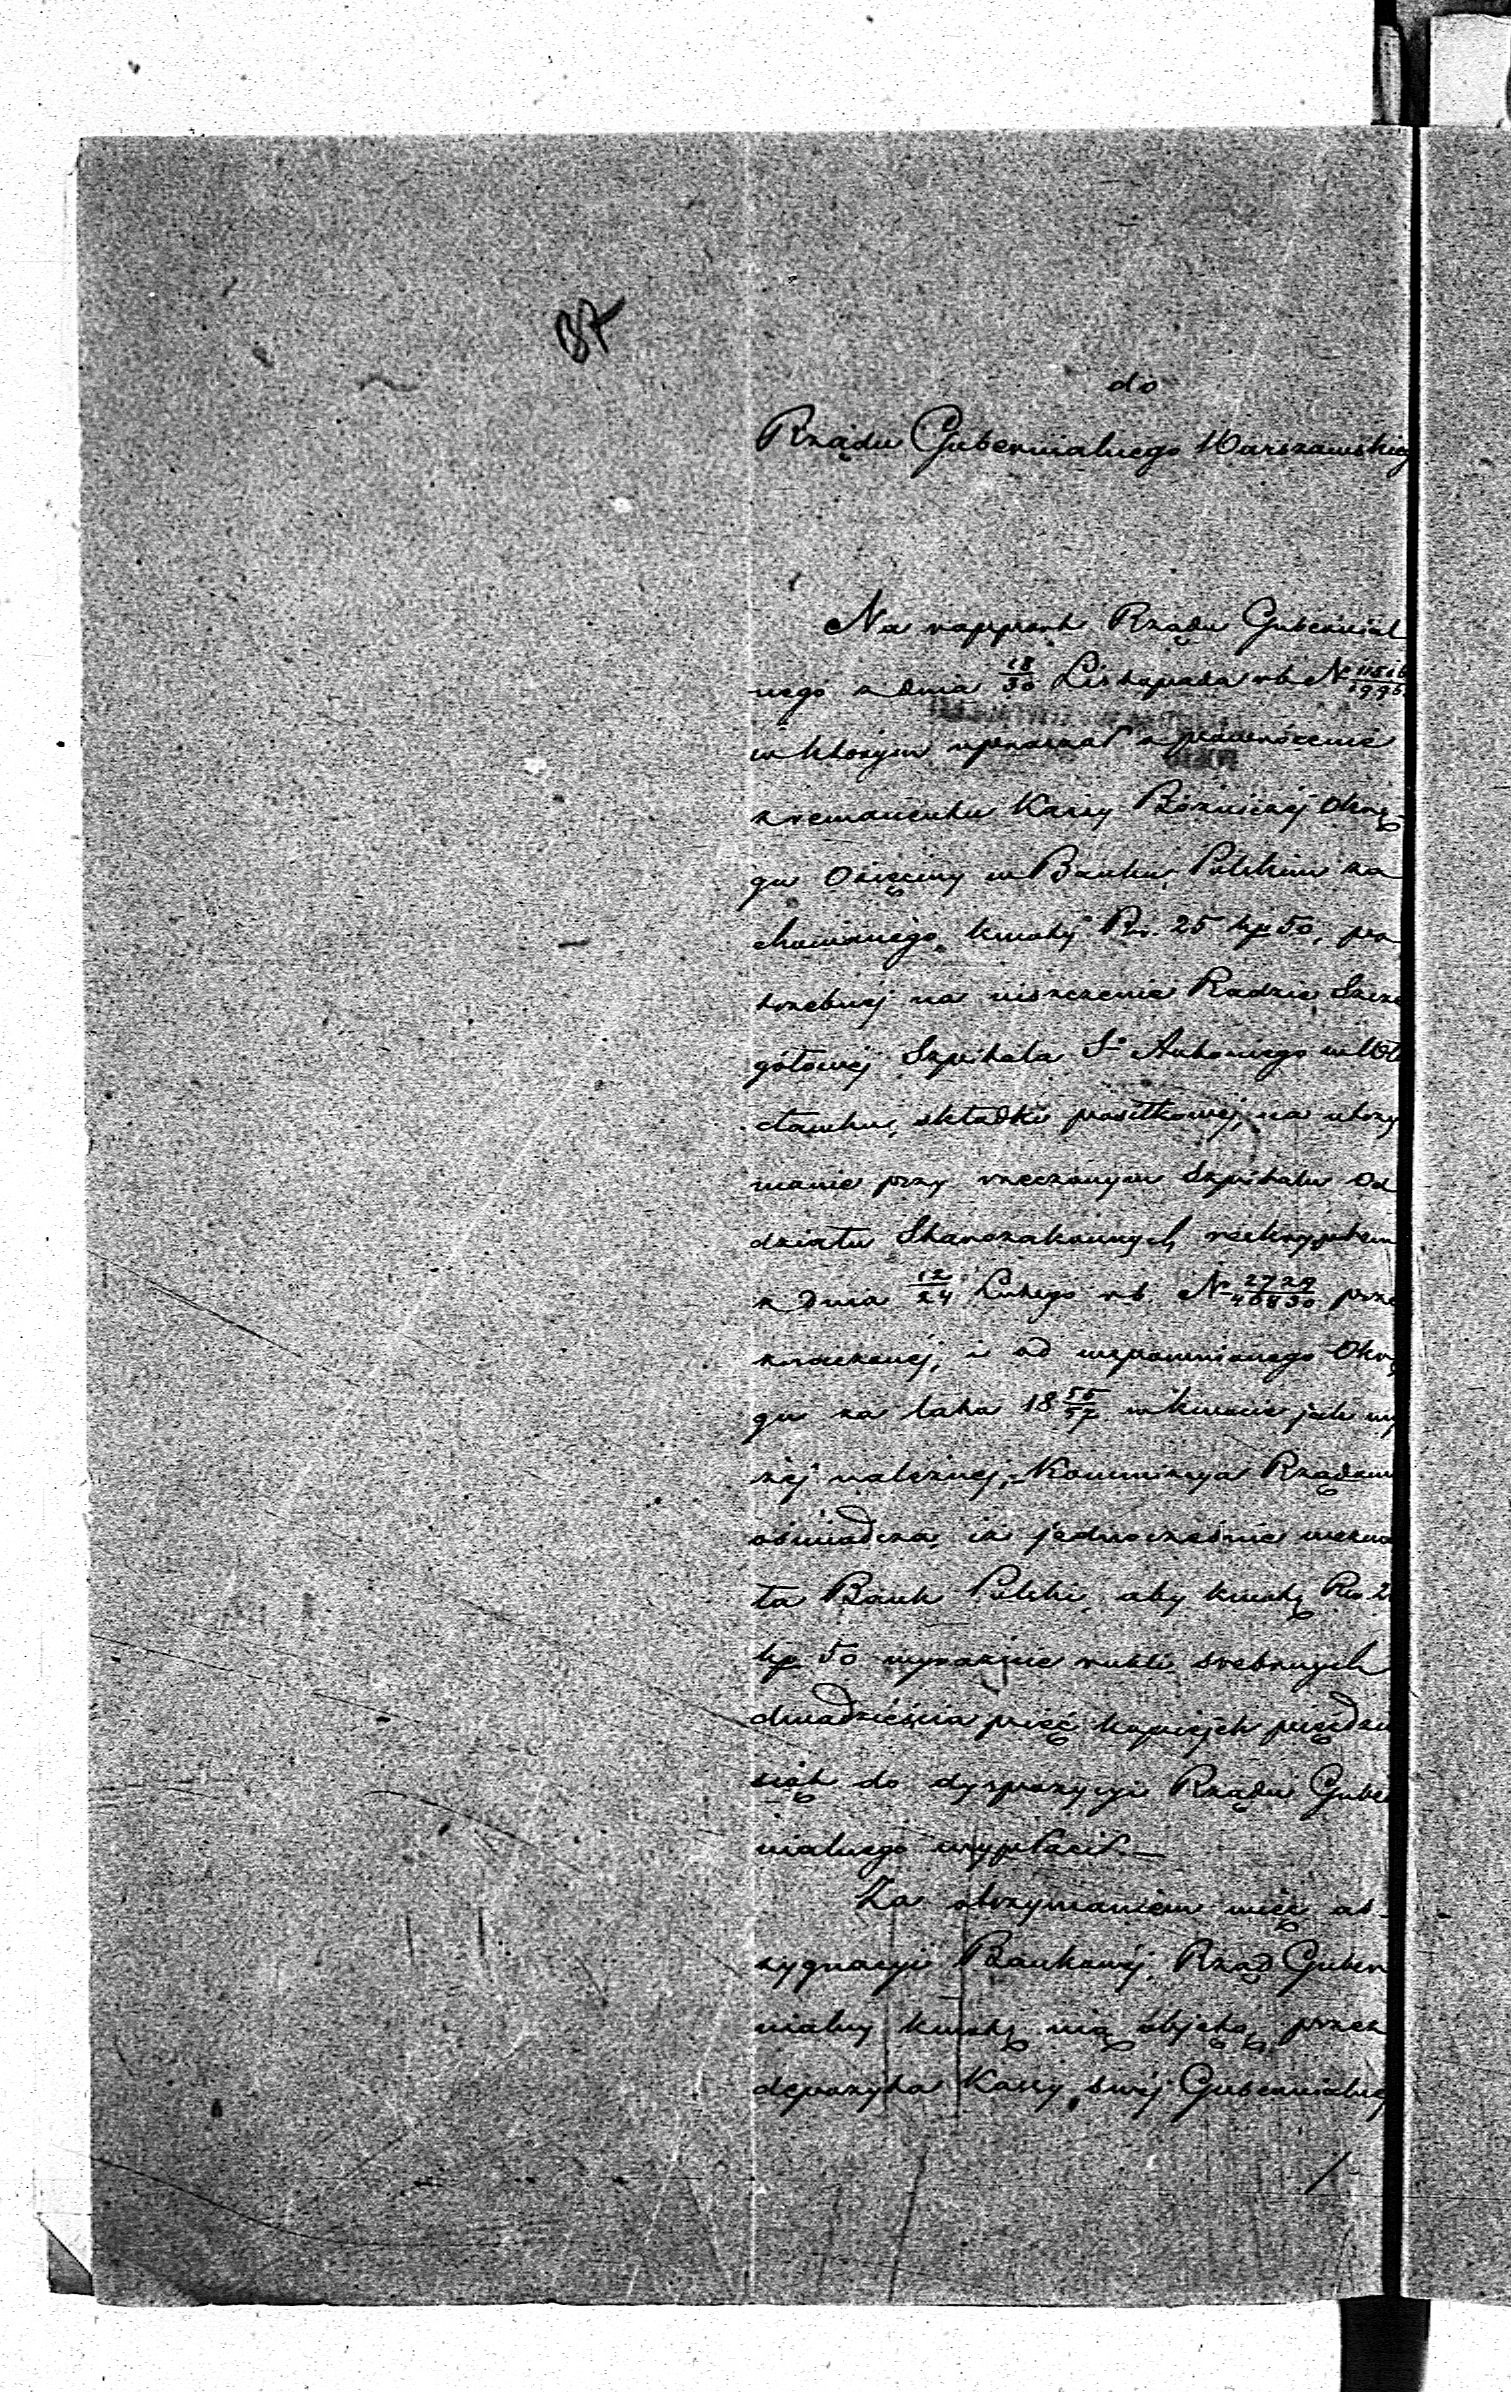 do
Rządu Gubernialnego Warszawskieg
Na rapport Rządu Gubernial
nego z dnia 18/30 Listopada rb. N
w którym upraszał o powrócenie
z remanentu Kassy Bóźniczéj Okrę-
gu Osięciny w Banku Polskim za
chowanego, kwoty Rs. 25 kp 50, po
trzebnéj na uiszczenie Radzie Szcze
gółowéj Szpitala Sgo Antoniego w Wło
cławku, składki posiłkowéj, na utrzy
manie przy rzeczonym Szpitalu Od
działu Starozakonnych, reskryptem
z dnia 12/24 Lutego rb. N 2729/46830 prze
znaczonéj, i od wspomnionego Okrę
gu za lata 18 55/57 w kwocie jak wy
żéj należnéj, Kommissya Rządowa
oświadcza, iż jednocześnie wezwa
ła Bank Polski, aby kwotę Rs 2
kp 50 wyraźnie rubli srebrnych
dwadzieścia pięć kopiejek pięćdzie
siąt do dyspozycyi Rządu Guber
nialnego wypłacił.—
Za otrzymaniem więc as-
sygnacyi Bankowéj, Rząd Guber
nialny kwotę nią objętą, przez
depozyta Kassy swéj Gubernialnéj